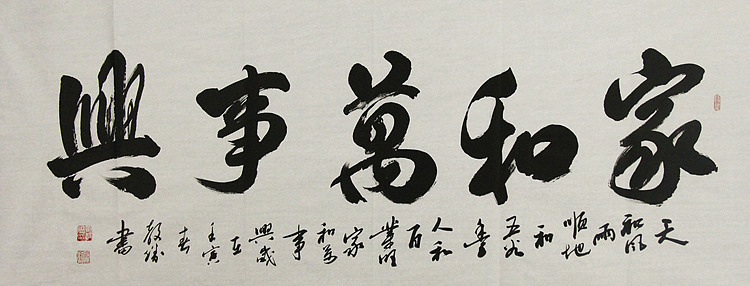 家和萬事興
天和風雨順地和五谷豐人和百業旺家和萬事興歲在壬寅春書